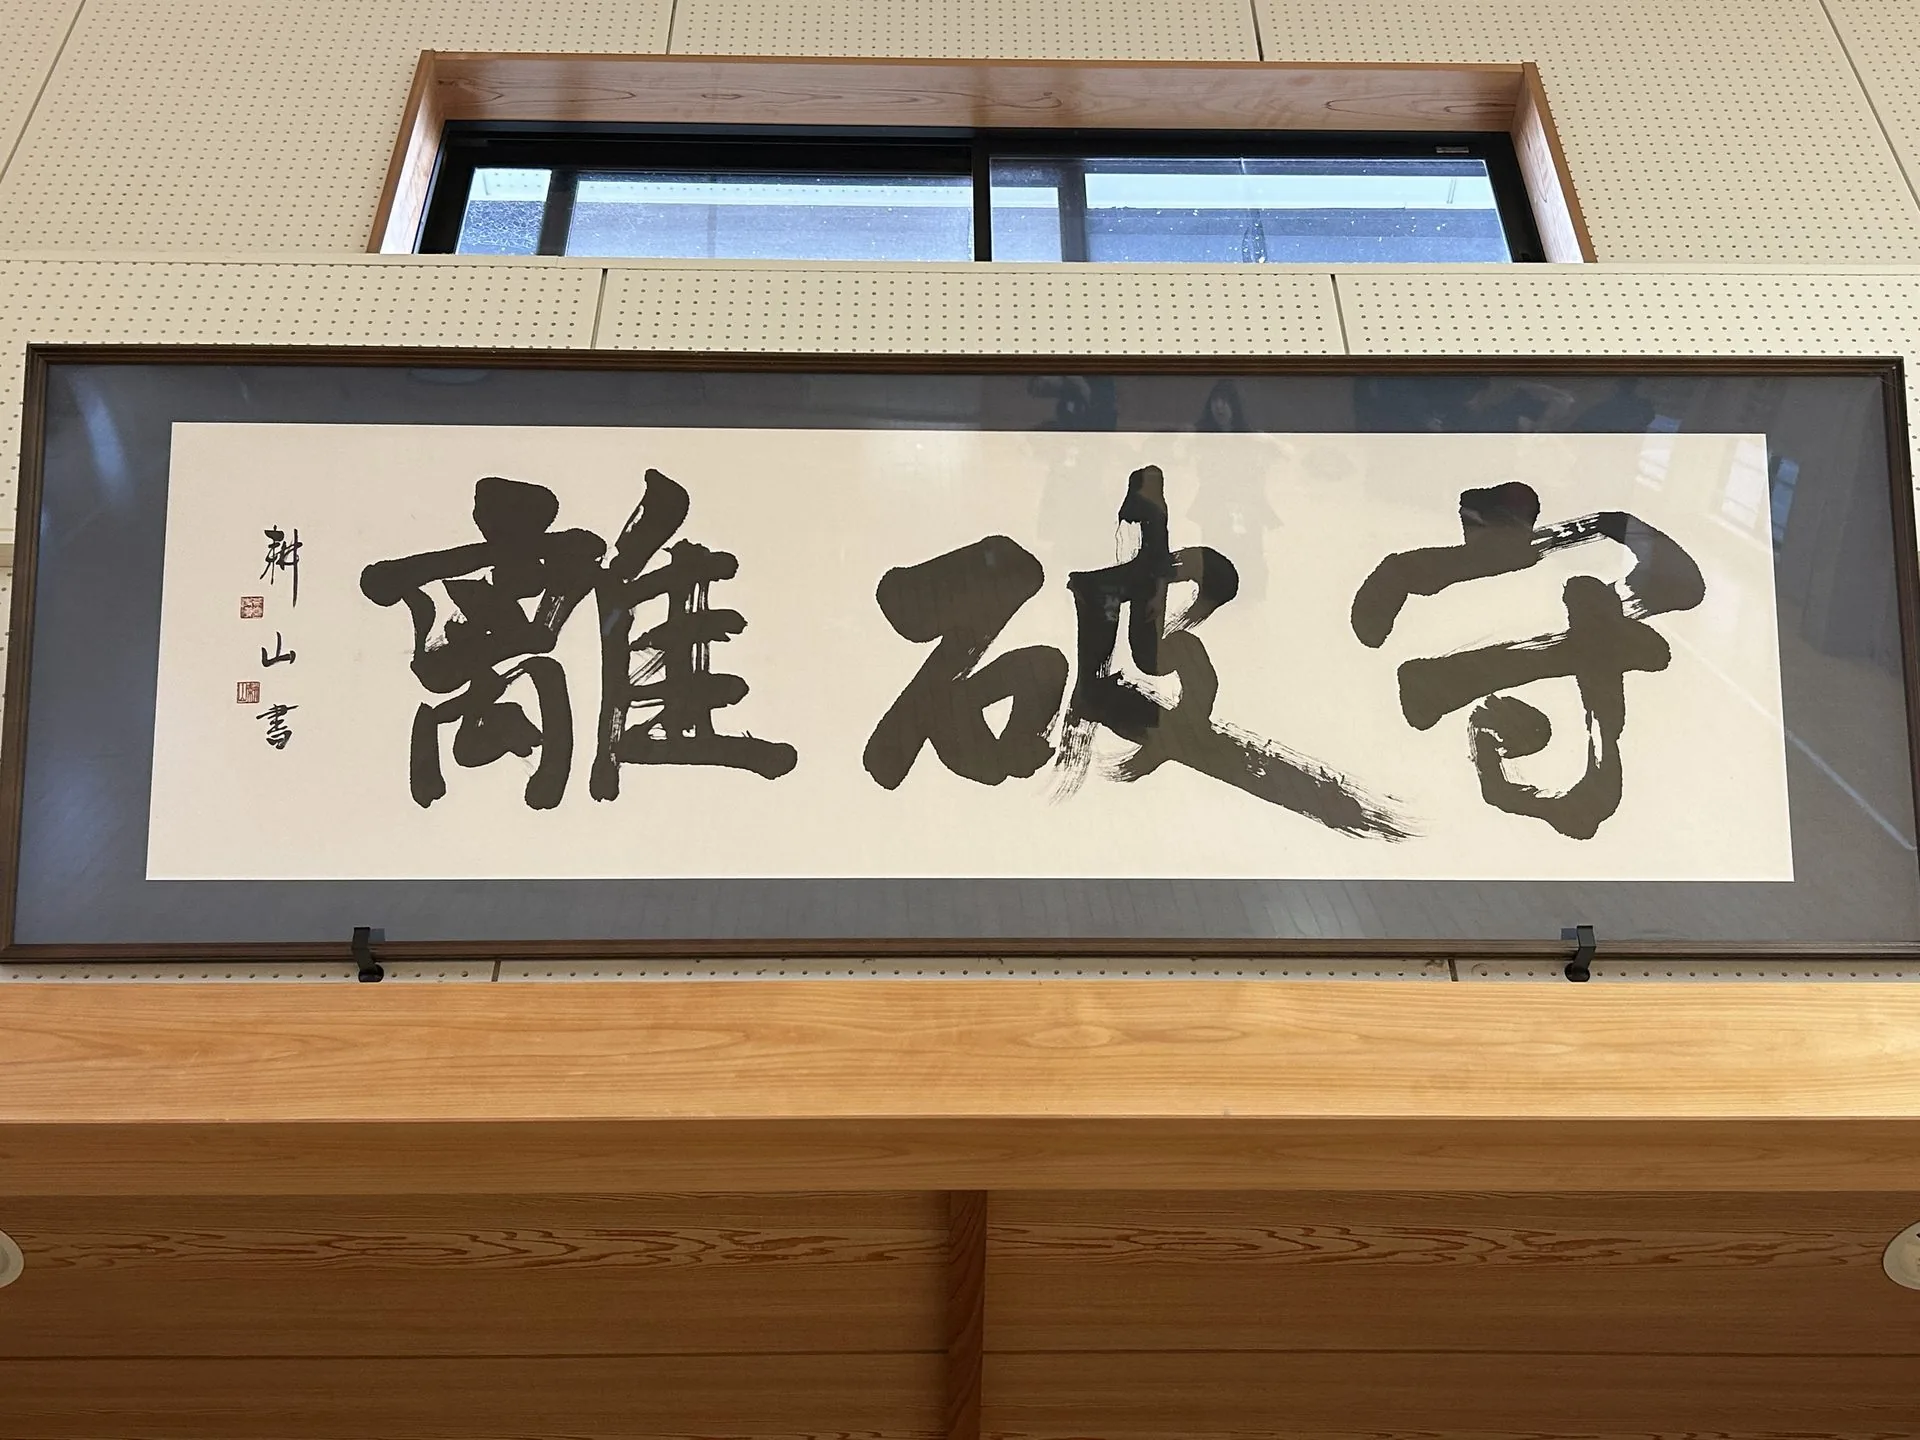 守破離
耕山書